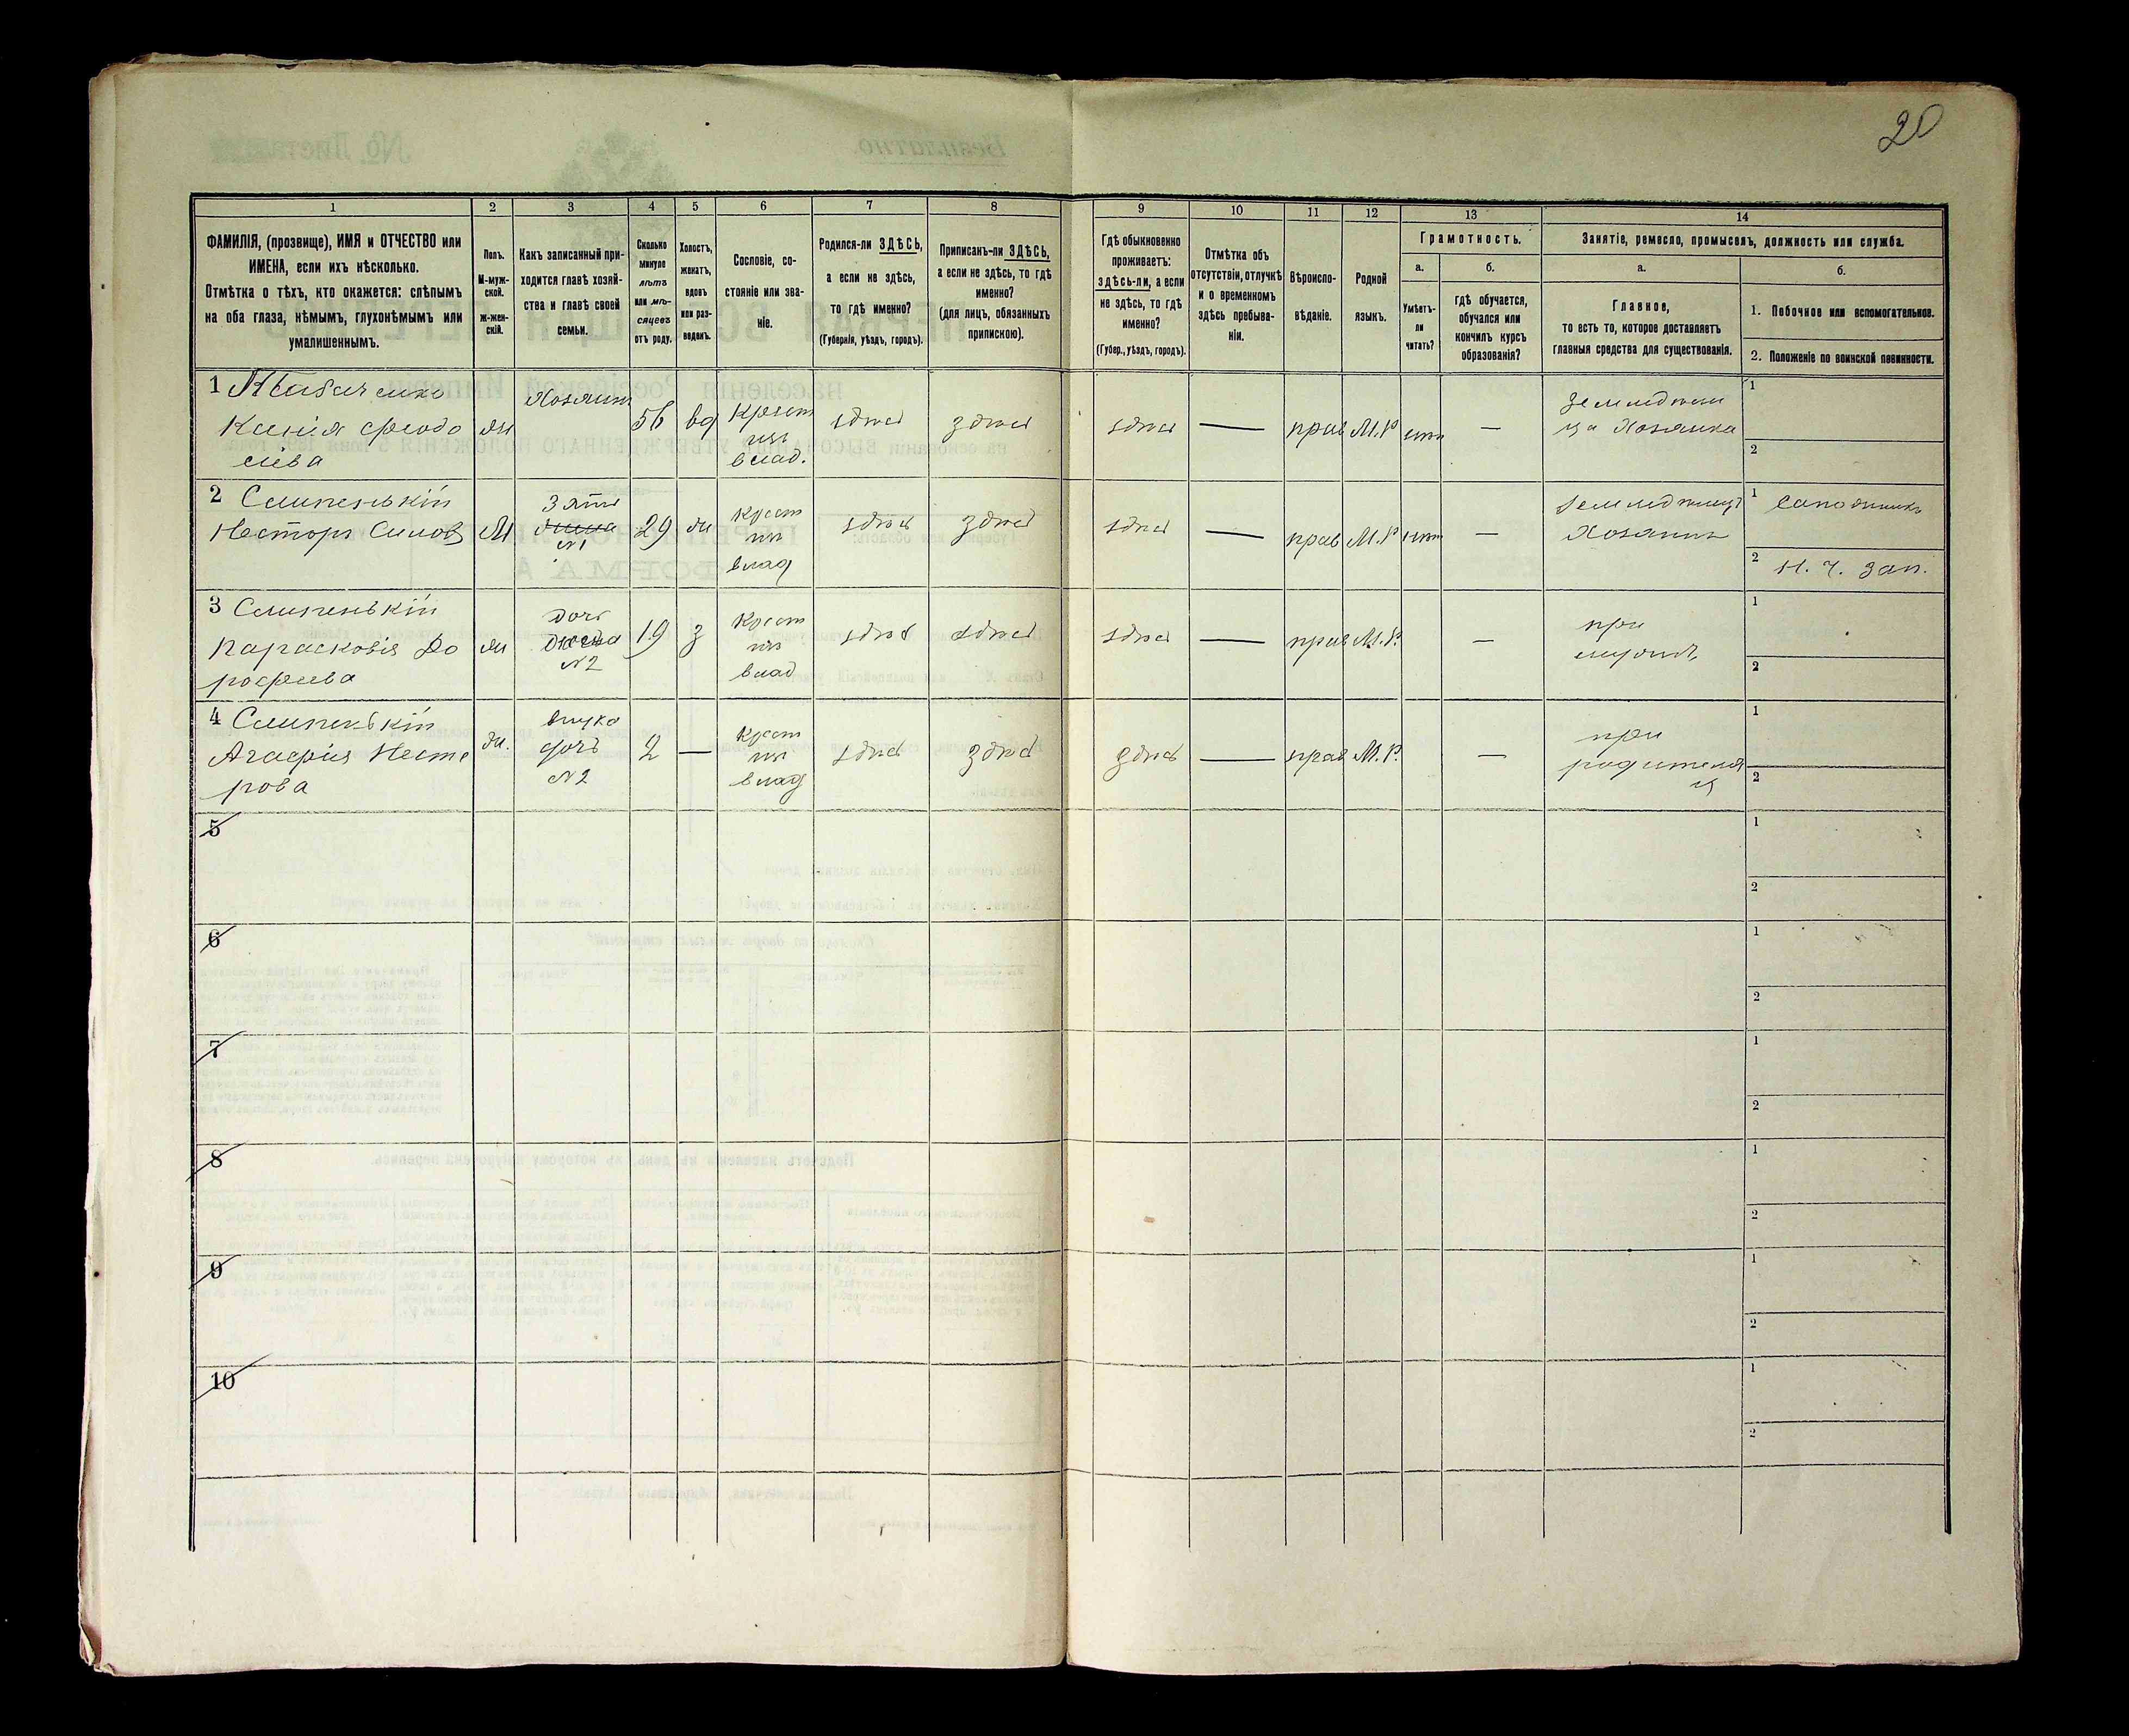 20
1
2
3
4
5
6
7
8
9
10
11
12
13
14
ФАМИЛІЯ, (прозвище), ИМЯ и ОТЧЕСТВО или
ИМЕНА, если ихъ нѣсколько.
Отмѣтка о тѣхъ, кто окажется: слѣпымъ
на оба глаза, нѣмымъ, глухонѣмымъ или
умалишеннымъ.
Полъ.
М-муж-
ской.
Ж-жен-
скій.
Какъ записанный при-
ходится главѣ хозяй-
ства и главѣ своей
семьи.
Сколько
минуло
лѣтъ
или мѣ-
сяцевъ
отъ роду.
Холостъ,
женатъ,
вдовъ
или раз-
веденъ.
Сословіе, со-
стояніе или зва-
ніе.
Родился-ли ЗДѢСЬ,
а если не здѣсь,
то гдѣ именно?
(Губернія, уѣздъ, городъ).
Приписанъ-ли ЗДѢСЬ,
а если не здѣсь, то гдѣ
именно?
(для лицъ, обязанныхъ
припискою).
Гдѣ обыкновенно
проживаетъ:
здѣсь-ли, а если
не здѣсь, то гдѣ
именно?
(Губер., уѣздъ, городъ).
Отмѣтка объ
отсутствіи, отлучкѣ
и о временномъ
здѣсь пребыва-
ніи.
Вѣроиспо-
вѣданіе.
Родной
языкъ.
Грамотность.
а.
Умѣетъ-
ли
читать?
б.
гдѣ обучается,
обучался или
кончилъ курсъ
образованія?
Занятіе, ремесло, промыселъ, должность или служба.
а.
Главное,
то есть то, которое доставляетъ
главныя средства для существованія.
б.
1. Побочное или вспомогательное.
2. Положеніе по воинской повинности.
1
Ксенія Феодо
сіева
56
вд
Крест
изъ
влад.
здѣсь
здѣсь
здѣсь
—
прав
М.Р
нѣтъ
—
Хозяйка
1
2
2 Слипенькій
Несторъ Силов
М
Зять
№1
29
ж
крест
изъ
влад
здѣсь
здѣсь
здѣсь
—
прав
М.Р
нѣтъ
—
Хозяинъ
1 Сапожникъ
2 Н. Ч. Зап.
3 Слипенькій
Парасковія До
рофеева
ж
дочь
№2
19
з
Крест
изъ
влад
здѣсь
здѣсь
здѣсь
—
прав
М.Р.
—
при
мужѣ
1
2
4 Слипенькій
Агафія Несте
рова
ж.
внука
дочь
№2
2
—
Крест
изъ
влад
здѣсь
здѣсь
здѣсь
—
прав
М.Р.
—
при
родителя
хъ
1
2
5
1
2
6
1
2
7
1
2
8
1
2
9
1
2
10
1
2